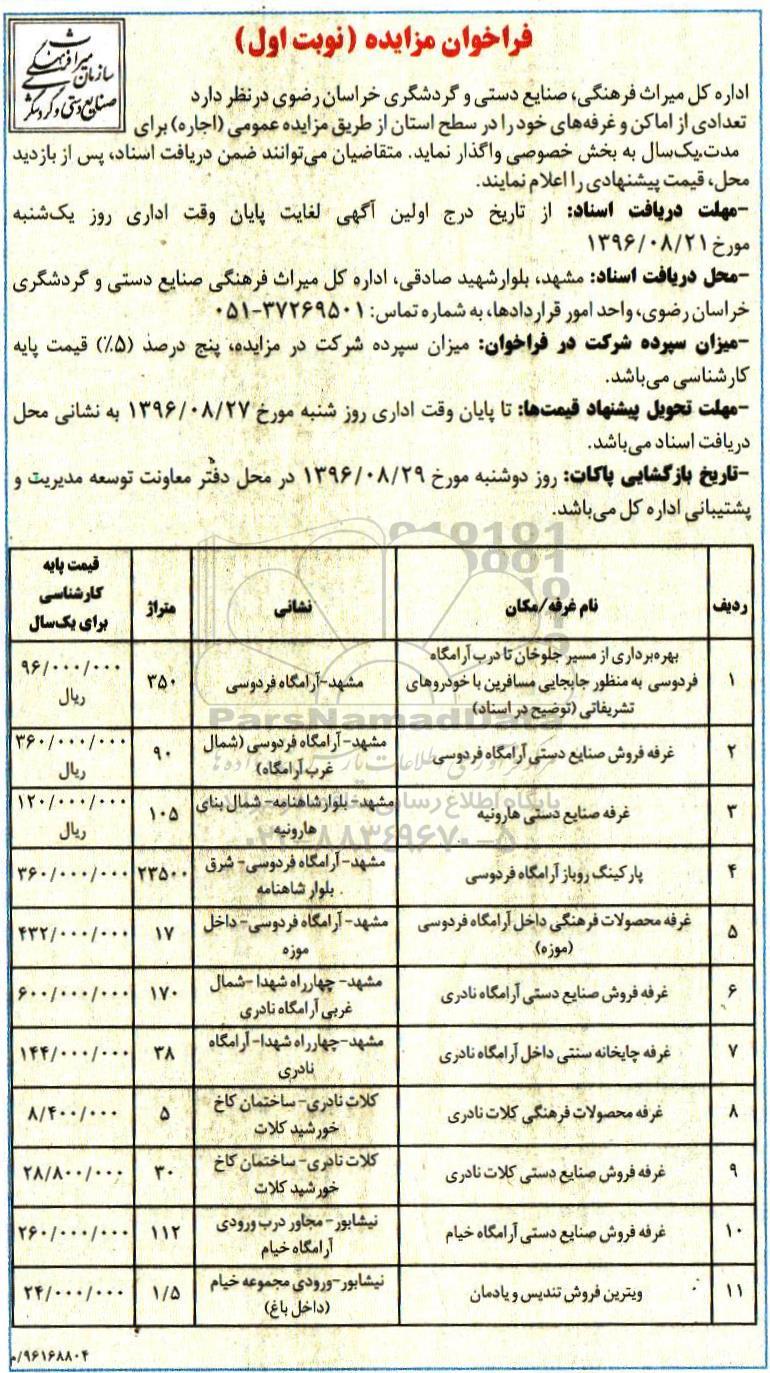 فراخوان مزایده (نوبت اول)
سازمان میراث فرهنگی
صنایع دستی و گردشگری
اداره کل میراث فرهنگی، صنایع دستی و گردشگری خراسان رضوی درنظر دارد
تعدادی از اماکن و غرفه‌های خود را در سطح استان از طریق مزایده عمومی (اجاره) برای
مدت یک‌سال به بخش خصوصی واگذار نماید. متقاضیان می‌توانند ضمن دریافت اسناد، پس از بازدید
محل، قیمت پیشنهادی را اعلام نمایند.
-مهلت دریافت اسناد: از تاریخ درج اولین آگهی لغایت پایان وقت اداری روز یک‌شنبه
مورخ ۱۳۹۶/۰۸/۲۱
-محل دریافت اسناد: مشهد، بلوارشهید صادقی، اداره کل میراث فرهنگی صنایع دستی و گردشگری
خراسان رضوی، واحد امور قراردادها، به شماره تماس: ۳۷۲۶۹۵۰۱-۰۵۱
-میزان سپرده شرکت در فراخوان: میزان سپرده شرکت در مزایده، پنج درصد (۵٪) قیمت پایه
کارشناسی می‌باشد.
-مهلت تحویل پیشنهاد قیمت‌ها: تا پایان وقت اداری روز شنبه مورخ ۱۳۹۶/۰۸/۲۷ به نشانی محل
دریافت اسناد می‌باشد.
-تاریخ بازگشایی پاکات: روز دوشنبه مورخ ۱۳۹۶/۰۸/۲۹ در محل دفتر معاونت توسعه مدیریت و
پشتیبانی اداره کل می‌باشد.
ردیف نام غرفه/مکان نشانی متراژ قیمت پایه
کارشناسی
برای یک‌سال
۱ بهره‌برداری از مسیر جلوخان تا درب آرامگاه
فردوسی به منظور جابجایی مسافرین با خودروهای
تشریفاتی (توضیح در اسناد) مشهد-آرامگاه فردوسی ۳۵۰ ۹۶/۰۰۰/۰۰۰
ریال
۲ غرفه فروش صنایع دستی آرامگاه فردوسی مشهد- آرامگاه فردوسی (شمال
غرب آرامگاه) ۹۰ ۳۶۰/۰۰۰/۰۰۰
ریال
۳ غرفه صنایع دستی هارونیه مشهد- بلوارشاهنامه- شمال بنای
هارونیه ۱۰۵ ۱۲۰/۰۰۰/۰۰۰
ریال
۴ پارکینگ روباز آرامگاه فردوسی مشهد- آرامگاه فردوسی- شرق
بلوار شاهنامه ۲۳۵۰۰ ۳۶۰/۰۰۰/۰۰۰
۵ غرفه محصولات فرهنگی داخل آرامگاه فردوسی
(موزه) مشهد- آرامگاه فردوسی- داخل
موزه ۱۷ ۴۳۲/۰۰۰/۰۰۰
۶ غرفه فروش صنایع دستی آرامگاه نادری مشهد- چهارراه شهدا -شمال
غربی آرامگاه نادری ۱۷۰ ۶۰۰/۰۰۰/۰۰۰
۷ غرفه چایخانه سنتی داخل آرامگاه نادری مشهد-چهارراه شهدا- آرامگاه
نادری ۳۸ ۱۴۴/۰۰۰/۰۰۰
۸ غرفه محصولات فرهنگی کلات نادری کلات نادری- ساختمان کاخ
خورشید کلات ۵ ۸/۴۰۰/۰۰۰
۹ غرفه فروش صنایع دستی کلات نادری کلات نادری- ساختمان کاخ
خورشید کلات ۳۰ ۲۸/۸۰۰/۰۰۰
۱۰ غرفه فروش صنایع دستی آرامگاه خیام نیشابور- مجاور درب ورودی
آرامگاه خیام ۱۱۲ ۲۶۰/۰۰۰/۰۰۰
۱۱ ویترین فروش تندیس و یادمان نیشابور-ورودی مجموعه خیام
(داخل باغ) ۱/۵ ۲۴/۰۰۰/۰۰۰
ParsNamadData
پایگاه اطلاع رسانی
۰۲۱-۸۸۳۴۹۶۷۰-۵
۹۶۱۶۸۸۰۴/م